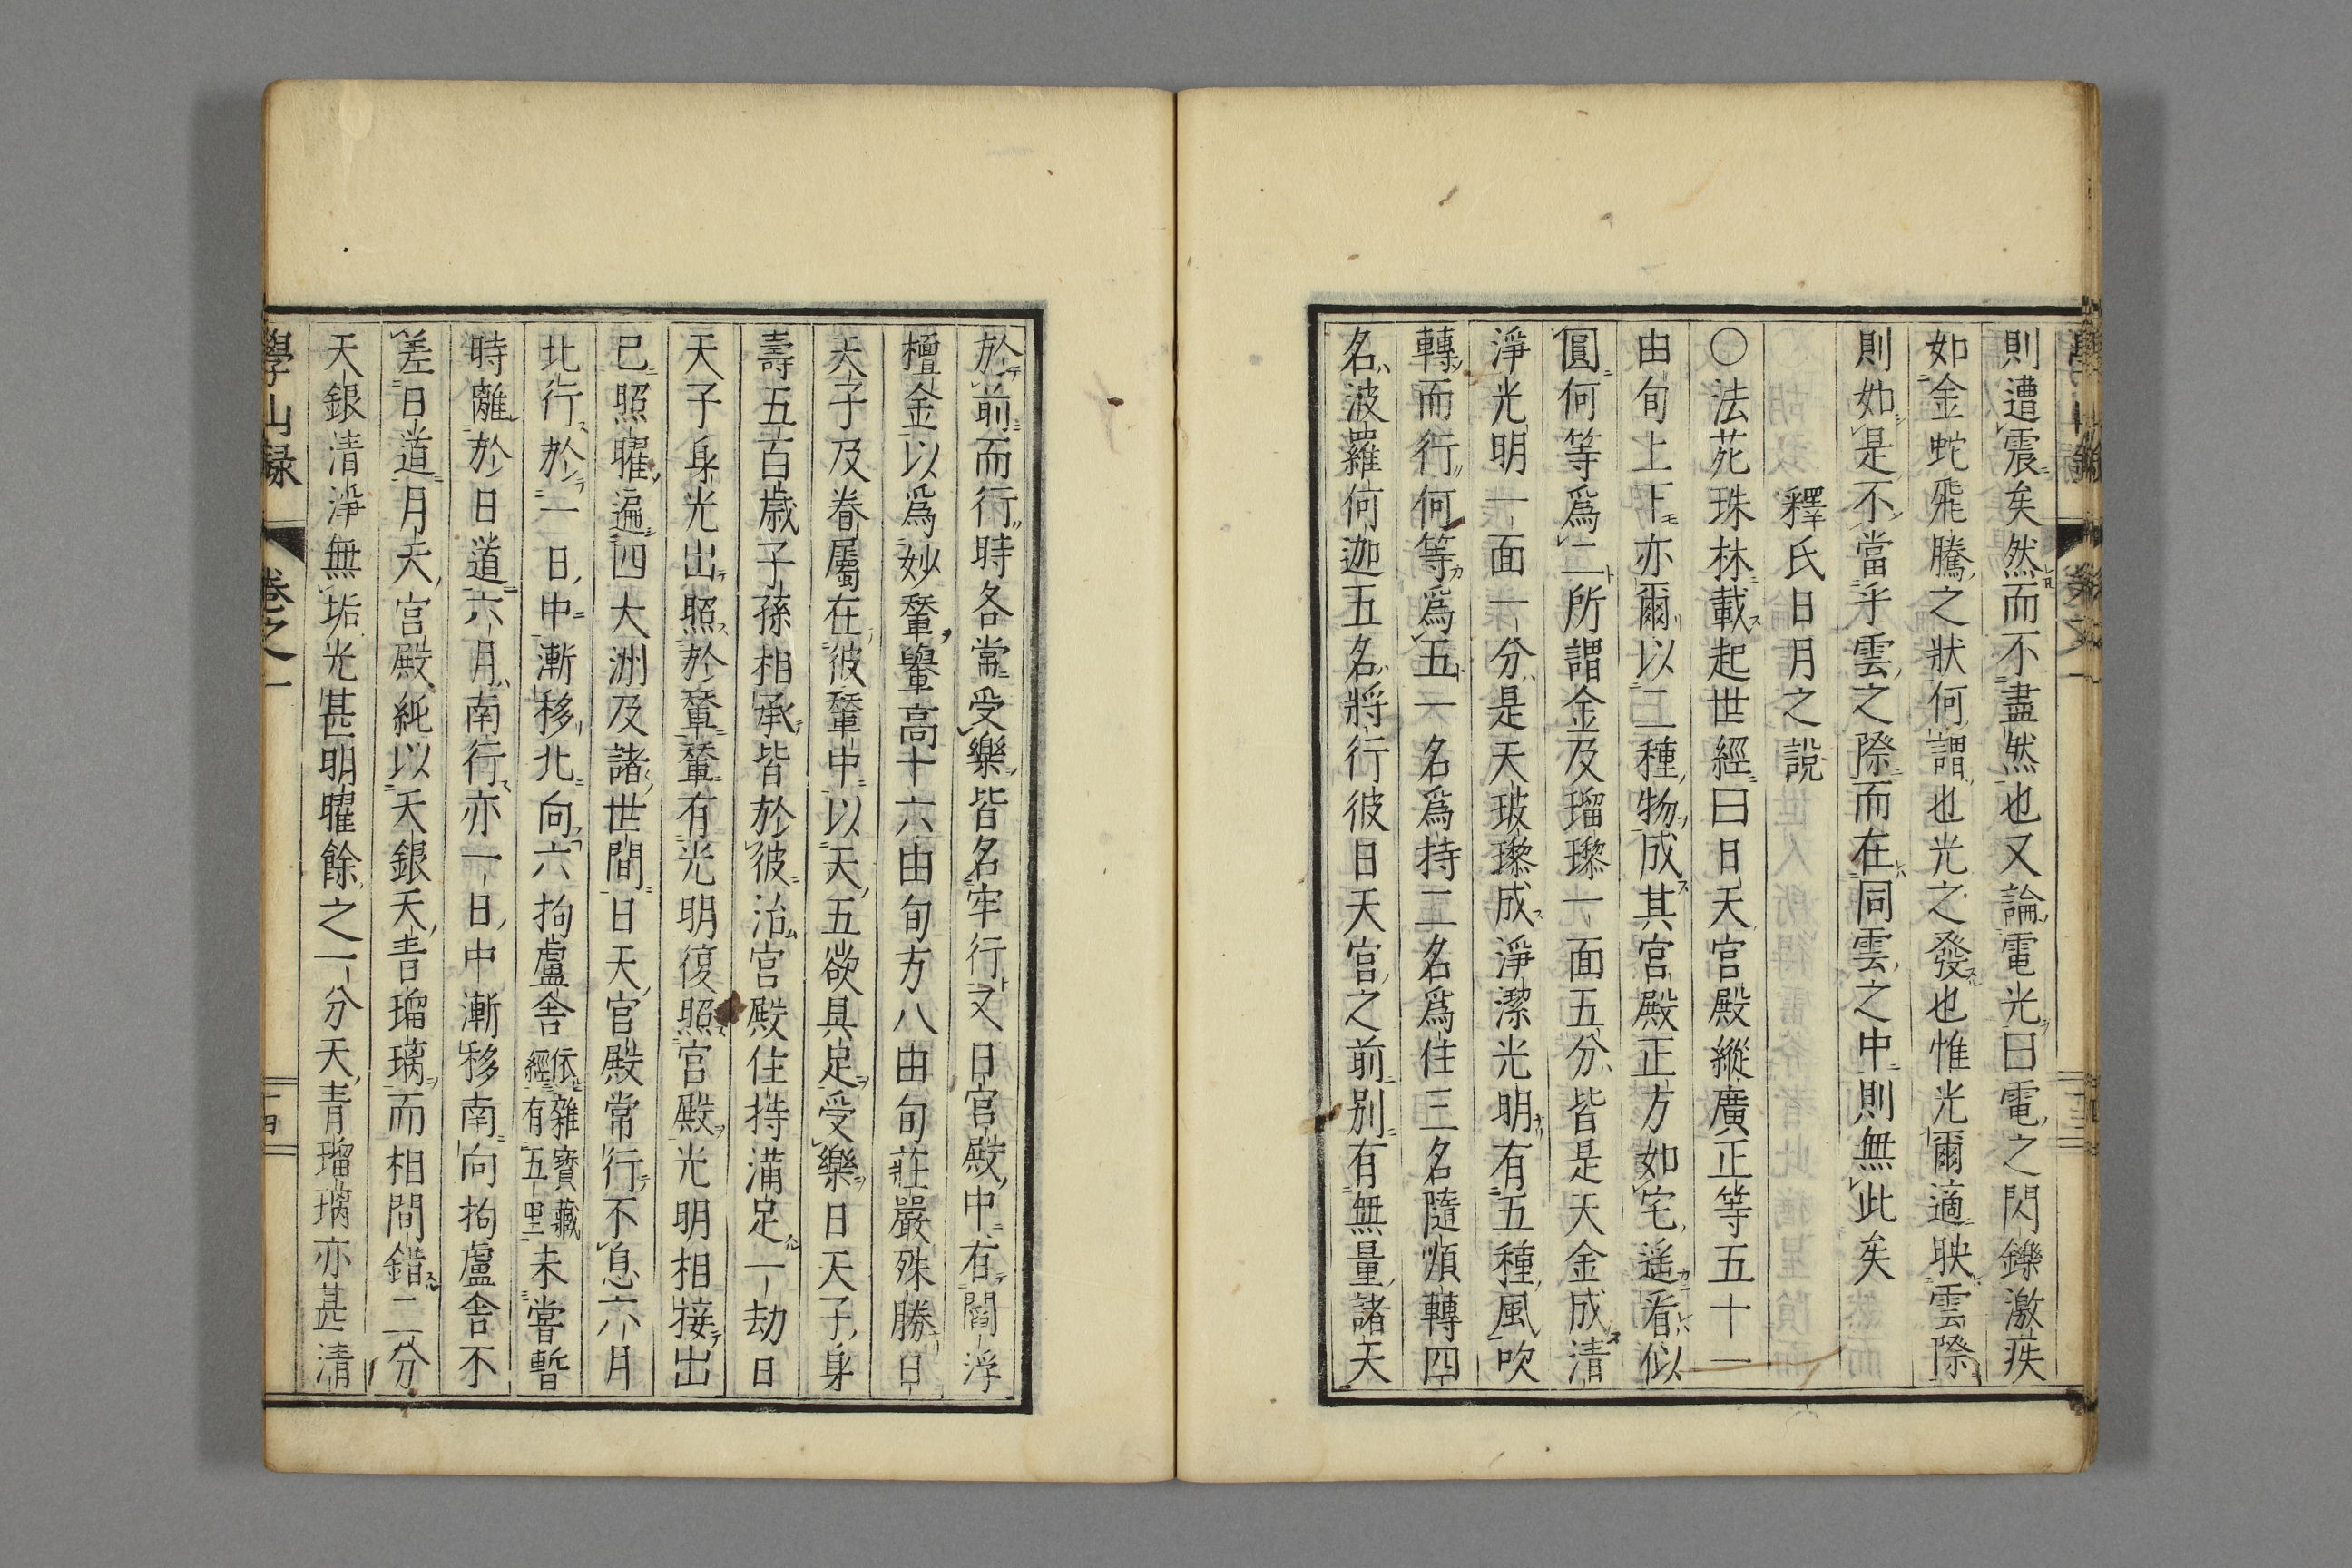 則遭震矣然而不盡然也又論電光曰電之閃鑠激疾
如金蛇飛騰之狀何謂也光之發也惟光爾適映雲際
則如是不當乎雲之際而在同雲之中則無此矣
釋氏日月之說
○法苑珠林載起世經曰日天宮殿縱廣正等五十一
由旬上下亦爾以二種物成其宮殿正方如宅遙看似
圓何等爲二所謂金及瑠璨一面五分皆是天金成清
淨光明一面一分是天玻璨成淨潔光明有五種風吹
轉而行何等爲五一名爲持二名爲住三名隨順轉四
名波羅何迦五名將行彼日天宮之前別有無量諸天
於前而行時各常受樂皆名牢行又日宮殿中有閻浮
檀金以爲妙輦轝高十六由旬方八由旬莊嚴殊勝日
天子及眷屬在彼輦中以天五欲具足受樂日天子身
壽五百歲子孫相承皆於彼治宮殿住持滿足一劫日
天子身光出照於輦輦有光明復照宮殿光明相接出
已照曜遍四大洲及諸世間日天宮殿常行不息六月
北行於一日中漸移北向六拘盧舍依雜寶藏經有五里未嘗暫
時離於日道六月南行亦一日中漸移南向拘盧舍不
差日道月天宮殿純以天銀天青瑠璃而相間錯二分
天銀清淨無垢光甚明曜餘之一分天青瑠璃亦甚清
學山録 卷之一 十四